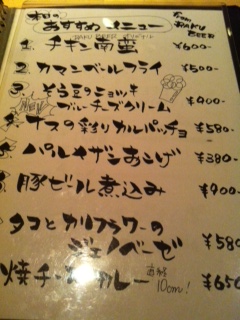 本日の おすすめメニュー from BAKU BEER
1. チキン南蛮 ¥600-
2. カマンベールフライ ¥500-
3. そら豆のニョッキ
ブルーチーズクリーム ¥900-
ナスの彩りカルパッチョ ¥580-
パルミジャンおこげ ¥380-
豚ビール煮込み ¥900-
タコとカリフラワーの
ジェノベーゼ ¥580
焼チーズカレー 直径10cm! ¥650